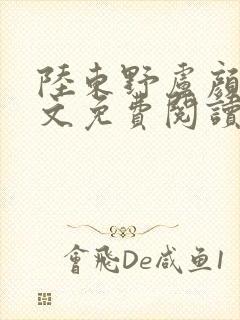 陸東野盧顏
文免費閱讀
會飛De咸鱼1